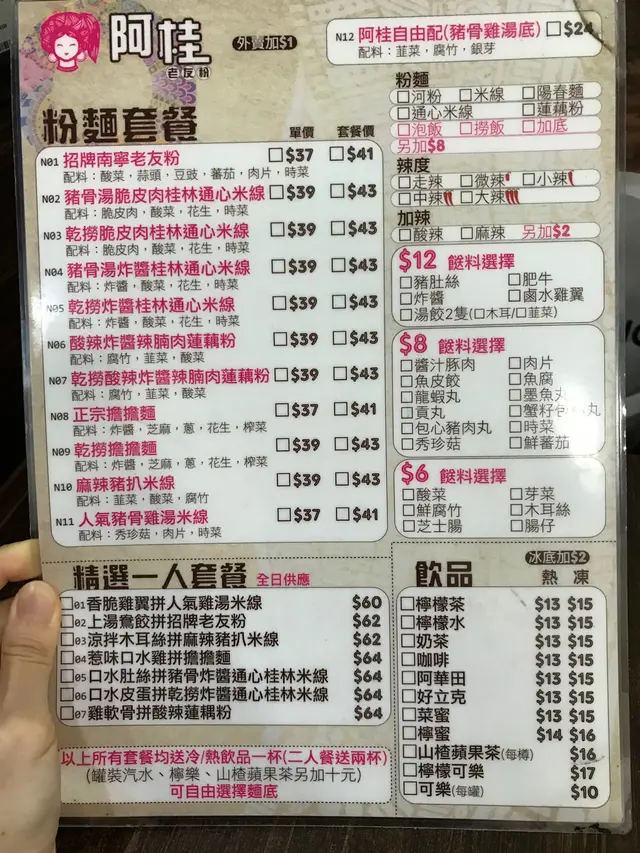 阿桂
老友粉
外賣加$1
N12 阿桂自由配(豬骨雞湯底) □$24
配料：韮菜，腐竹，銀芽
粉麵套餐
單價 套餐價
N01 招牌南寧老友粉 □$37 □$41
配料：酸菜，蒜頭，豆豉，蕃茄，肉片，時菜
N02 豬骨湯脆皮肉桂林通心米線 □$39 □$43
配料：脆皮肉，酸菜，花生，時菜
N03 乾撈脆皮肉桂林通心米線 □$39 □$43
配料：脆皮肉，酸菜，花生，時菜
N04 豬骨湯炸醬桂林通心米線 □$39 □$43
配料：炸醬，酸菜，花生，時菜
N05 乾撈炸醬桂林通心米線 □$39 □$43
配料：炸醬，酸菜，花生，時菜
N06 酸辣炸醬辣腩肉蓮藕粉 □$39 □$43
配料：腐竹，韮菜，酸菜
N07 乾撈酸辣炸醬辣腩肉蓮藕粉 □$39 □$43
配料：腐竹，韮菜，酸菜
N08 正宗擔擔麵 □$37 □$41
配料：炸醬，芝麻，蔥，花生，榨菜
N09 乾撈擔擔麵 □$39 □$43
配料：炸醬，芝麻，蔥，花生，榨菜
N10 麻辣豬扒米線 □$39 □$43
配料：韮菜，酸菜，腐竹
N11 人氣豬骨雞湯米線 □$37 □$41
配料：秀珍菇，肉片，時菜
粉麵
□河粉 □米線 □陽春麵
□通心米線 □蓮藕粉
□泡飯 □撈飯 □加底
另加$8
辣度
□走辣 □微辣 □小辣
□中辣 □大辣
加辣
□酸辣 □麻辣 另加$2
$12 餸料選擇
□豬肚絲 □肥牛
□炸醬 □鹵水雞翼
□湯餃2隻(□木耳/□韮菜)
$8 餸料選擇
□醬汁豚肉 □肉片
□魚皮餃 □魚腐
□龍蝦丸 □墨魚丸
□貢丸 □蟹籽包丸
□包心豬肉丸 □時菜
□秀珍菇 □鮮蕃茄
$6 餸料選擇
□酸菜 □芽菜
□鮮腐竹 □木耳絲
□芝士腸 □腸仔
精選一人套餐 全日供應
□01香脆雞翼拼人氣雞湯米線 $60
□02上湯鴦餃拼招牌老友粉 $62
□03涼拌木耳絲拼麻辣豬扒米線 $62
□04惹味口水雞拼擔擔麵 $64
□05口水肚絲拼豬骨炸醬通心桂林米線 $64
□06口水皮蛋拼乾撈炸醬通心桂林米線 $64
□07雞軟骨拼酸辣蓮藕粉 $64
以上所有套餐均送冷/熱飲品一杯(二人餐送兩杯)
(罐裝汽水、檸樂、山楂蘋果茶另加十元)
可自由選擇麵底
飲品
冰底加$2
熱 凍
□檸檬茶 $13 $15
□檸檬水 $13 $15
□奶茶 $13 $15
□咖啡 $13 $15
□阿華田 $13 $15
□好立克 $13 $15
□菜蜜 $13 $15
□檸蜜 $14 $16
□山楂蘋果茶(每樽) $16
□檸檬可樂 $17
□可樂(每罐) $10